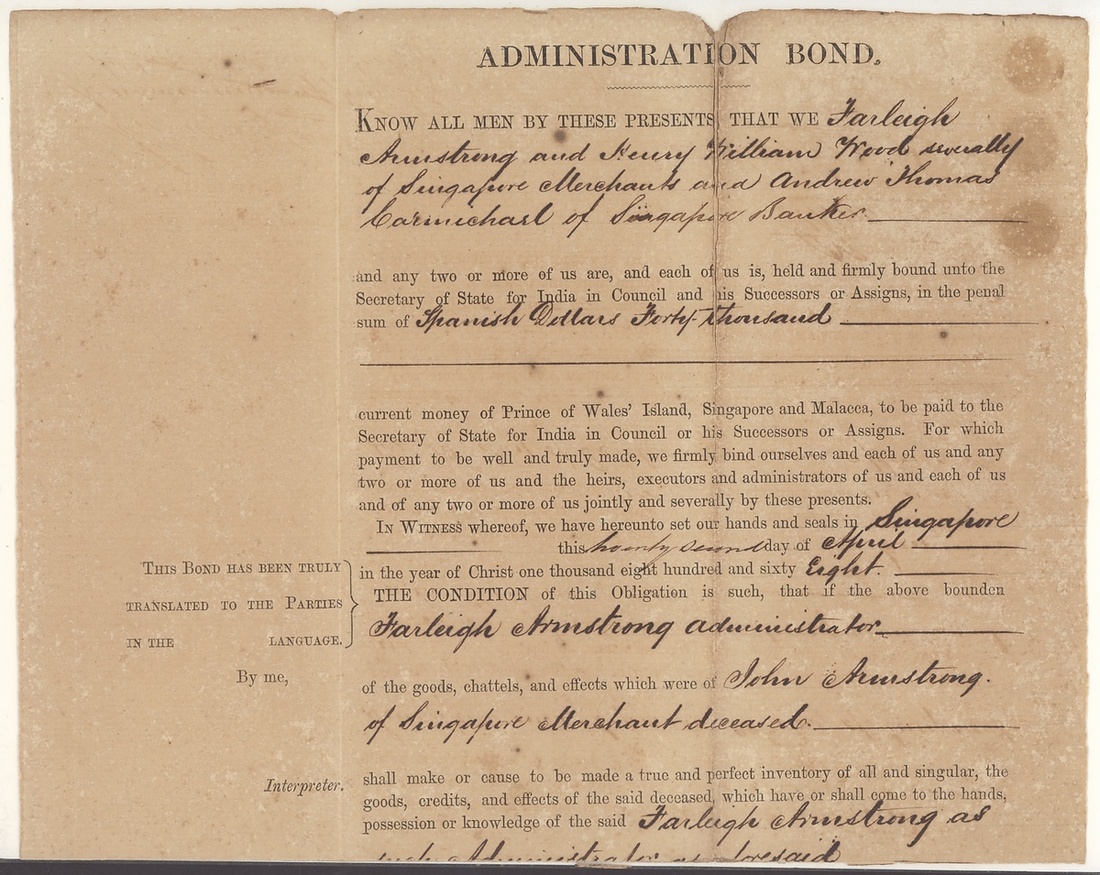 ADMINISTRATION BOND.
KNOW ALL MEN BY THESE PRESENTS, THAT WE Farleigh
Armstrong and Henry William Wood severally
of Singapore Merchants and Andrew Thomas
Carmichael of Singapore Banker
and any two or more of us are, and each of us is, held and firmly bound unto the
Secretary of State for India in Council and his Successors or Assigns, in the penal
sum of Spanish Dollars Forty thousand
current money of Prince of Wales' Island, Singapore and Malacca, to be paid to the
Secretary of State for India in Council or his Successors or Assigns. For which
payment to be well and truly made, we firmly bind ourselves and each of us and any
two or more of us and the heirs, executors and administrators of us and each of us
and of any two or more of us jointly and severally by these presents.
IN WITNESS whereof, we have hereunto set our hands and seals in Singapore
this twenty second day of April
in the year of Christ one thousand eight hundred and sixty Eight.
THE CONDITION of this Obligation is such, that if the above bounden
Farleigh Armstrong administrator
of the goods, chattels, and effects which were of John Armstrong.
of Singapore Merchant deceased.
shall make or cause to be made a true and perfect inventory of all and singular, the
goods, credits, and effects of the said deceased, which have or shall come to the hands,
possession or knowledge of the said Farleigh Armstrong as
such Administrator as aforesaid
THIS BOND HAS BEEN TRULY
TRANSLATED TO THE PARTIES
IN THE LANGUAGE.
By me,
Interpreter.